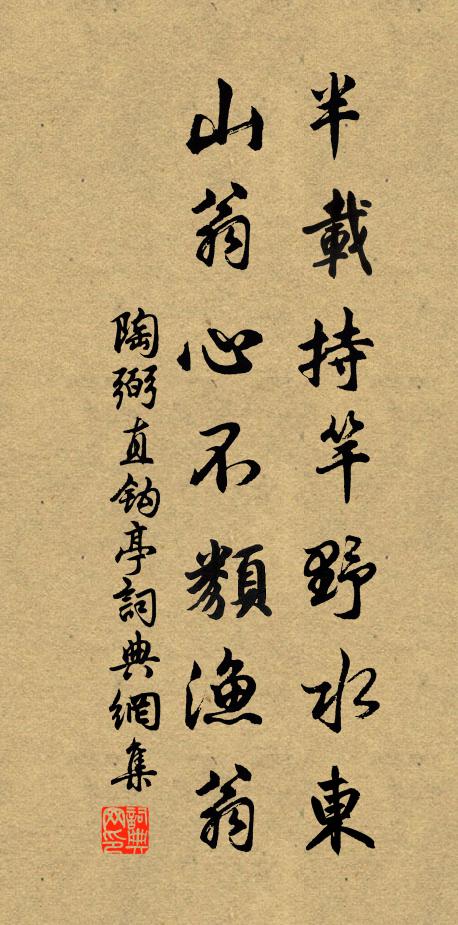 半載持竿野水東
山翁心不類漁翁
陶弼直鈎亭詞典網集
詞典網印